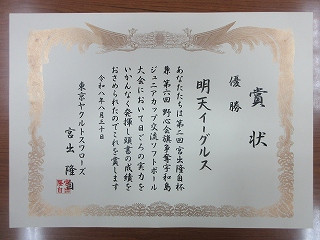 賞状
優勝
明天イーグルス
あなたたちは第二回宮出隆自杯
兼第六回野心会旗争奪宇和島
ジュニアカップ交流ソフトボール
大会において日ごろの実力を
いかんなく発揮し頭書の成績を
おさめられたのでこれを賞します
令和八年八月三十日
東京ヤクルトスワローズ
宮出隆自